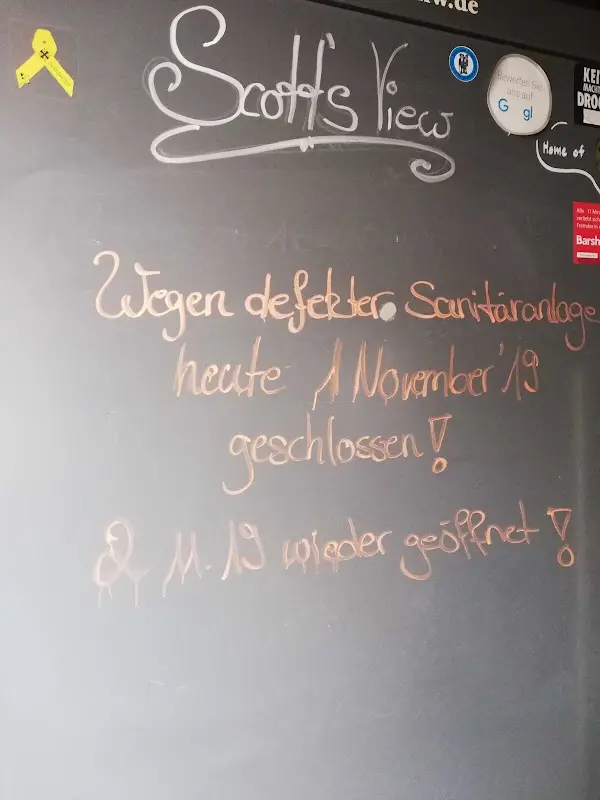 w.de
Scott's View
Bewerten Sie
uns auf
G gl
KEI
MACHT
DROG
Home of
Barsh
Wegen defekter Sanitäranlage
heute 1 November '19
geschlossen!
2 11. 19 wieder geöffnet!